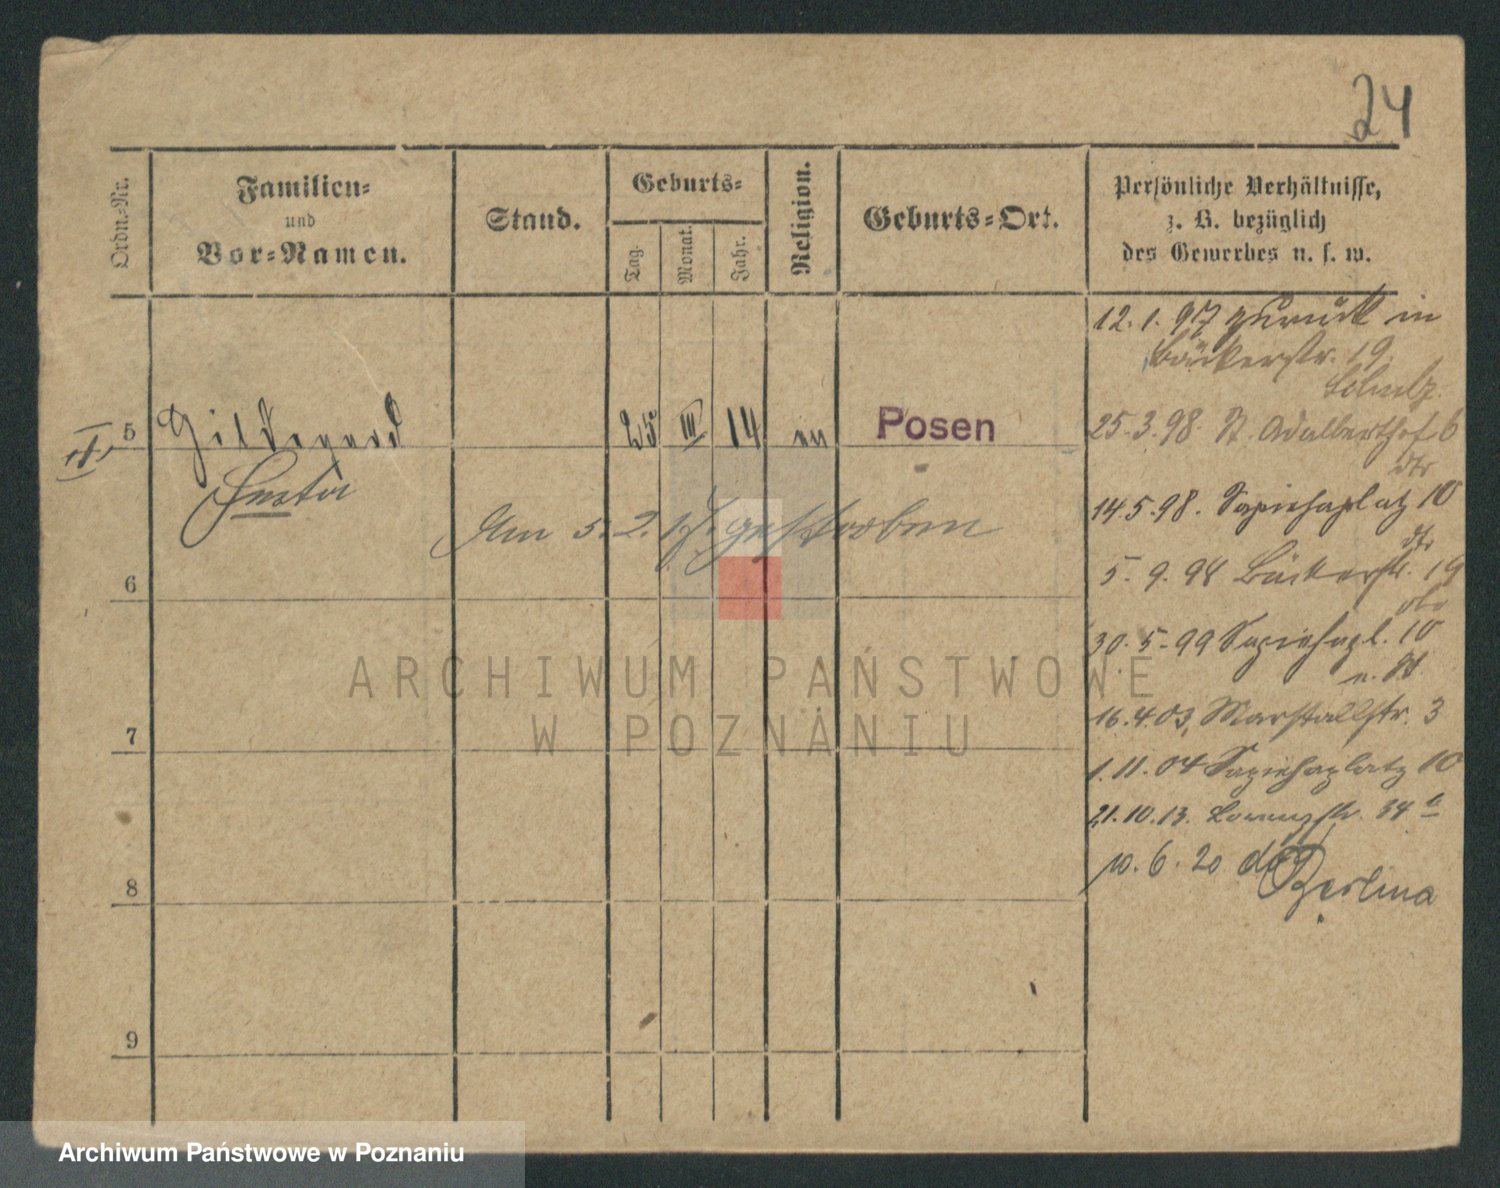 24
Ordn.-Nr.
Familien-
und
Vor-Namen.
Stand.
Geburts-
Tag.
Monat.
Jahr.
Religion.
Geburts-Ort.
Persönliche Verhältnisse,
z. B. bezüglich
des Gewerbes u. s. w.
12. 1. 97 zurück in
Bäckerstr. 19.
Schulz
5 Hildegard 25 III 14 ev Posen
25. 3. 98. St. Adalberthof 6
14. 5. 98. Sapiehaplatz 10
Am 5. 2. gestorben
5. 9. 98 Bäckerstr. 19
6
30. 5. 99 Sapiehapl. 10
16. 4. 03. Marstallstr. 3
7
1. 11. 04 Sapiehaplatz 10
21. 10. 13. 34 a
10. 6. 20 do Berlina
8
9
ARCHIWUM PAŃSTWOWE
W POZNANIU
Archiwum Państwowe w Poznaniu